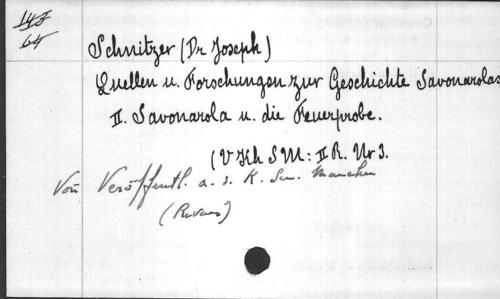 145
65
Schnitzer (Dr Joseph)
Quellen u. Forschungen zur Geschichte Savonarolas
II. Savonarola u. die Feuerprobe.
(V Kh S M: II R. Nr 3.
Von Veröffentl. a. d. K. Sem. München